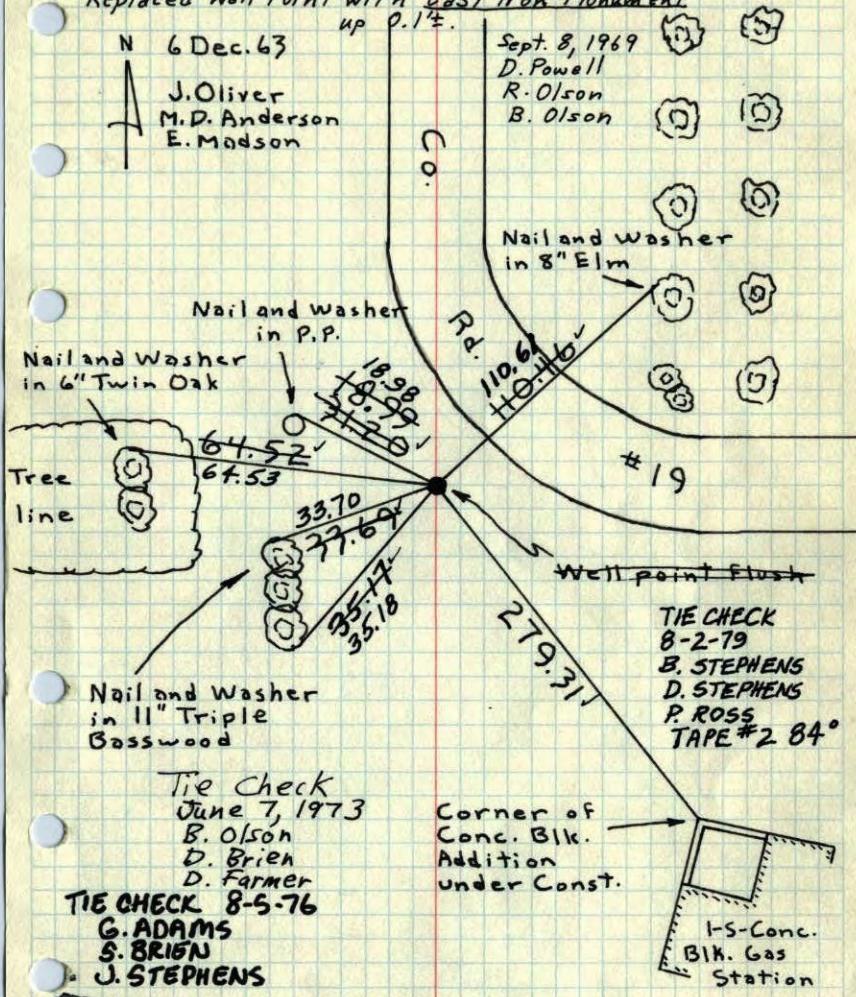 Replaced Well Point with Cast Iron Monument
up 0.1'±.
N 6 Dec. 63
J. Oliver
M.D. Anderson
E. Madson
Sept. 8, 1969
D. Powell
R. Olson
B. Olson
Co.
Rd.
#19
Nail and Washer
in 8" Elm
Nail and Washer
in P.P.
Nail and Washer
in 6" Twin Oak
18.98
18.99
21.20 ✓
110.61
110.46 ✓
64.52 ✓
64.53
Tree
line
33.70
33.69
35.17 ✓
35.18
Well point Flush
279.31 ✓
TIE CHECK
8-2-79
B. STEPHENS
D. STEPHENS
P. ROSS
TAPE #2 84°
Nail and Washer
in 11" Triple
Basswood
Tie Check
June 7, 1973
B. Olson
D. Brien
D. Farmer
TIE CHECK 8-5-76
G. ADAMS
S. BRIEN
J. STEPHENS
Corner of
Conc. Blk.
Addition
under Const.
1-S-Conc.
Blk. Gas
Station